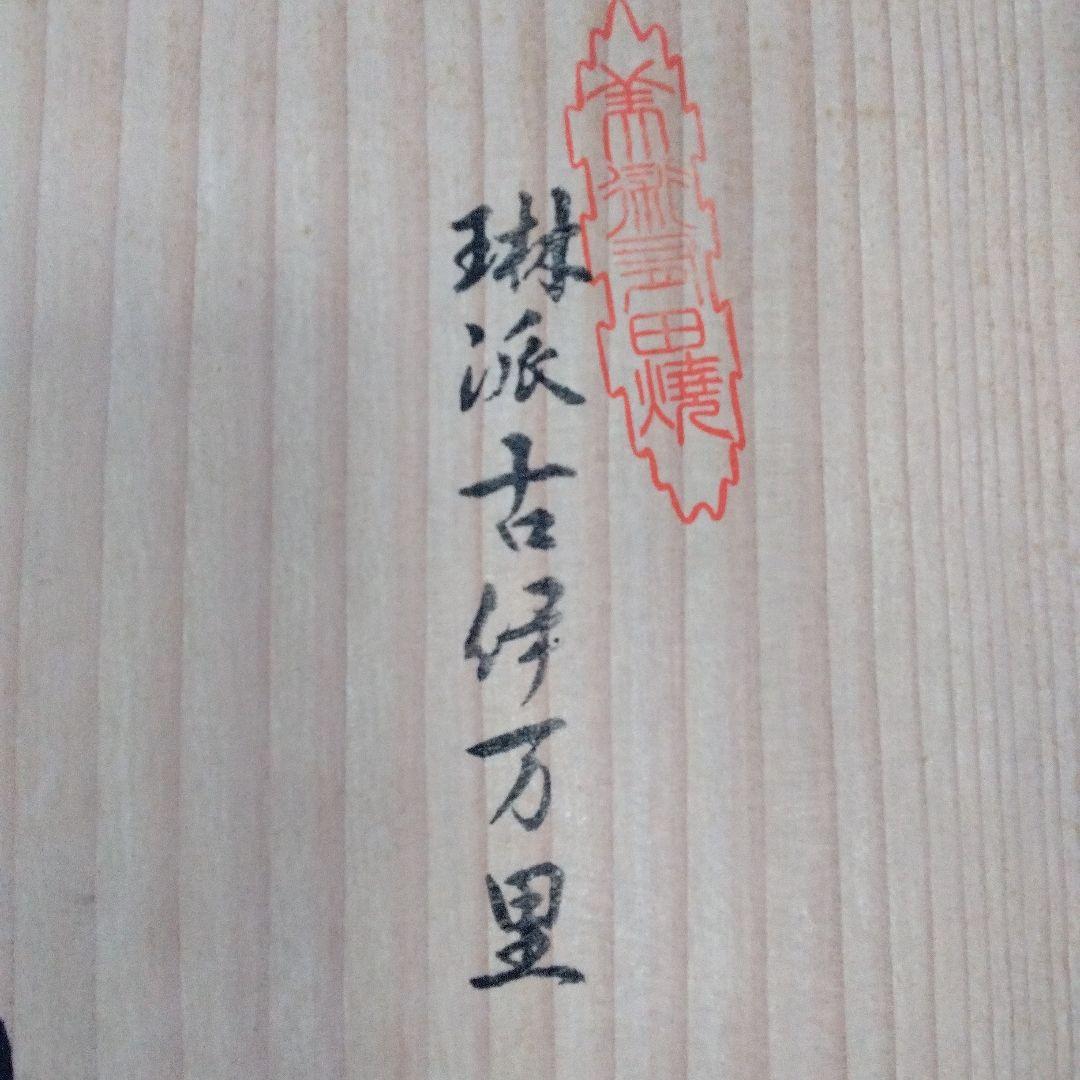 美術有田焼
琳派古伊万里